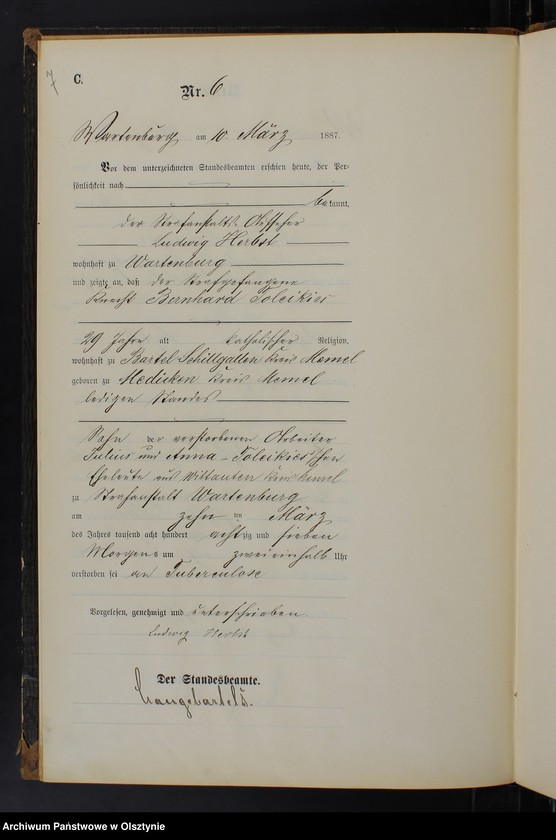 7
C.
Nr. 6
Wartenburg am 10. März 1887.
Vor dem unterzeichneten Standesbeamten erschien heute, der Per-
sönlichkeit nach
bekannt,
der Strafanstalts Aufseher
Ludwig Herbst
wohnhaft zu Wartenburg
und zeigte an, daß der Strafgefangene
Knecht Bernhard Toleikies
29 Jahre alt katholischer Religion,
wohnhaft zu Bartel Schillgallen Kreis Memel
geboren zu Medicken Kreis Memel
ledigen Standes
Sohn der verstorbenen Arbeiter
Julius und Anna Toleikies'schen
Eheleute aus Wittauten Kreis Memel
zu Strafanstalt Wartenburg
am zehn ten März
des Jahres tausend acht hundert achtzig und sieben
Morgens um zweieinhalb Uhr
verstorben sei an Tuberculose
Vorgelesen, genehmigt und unterschrieben
Ludwig Herbst
Der Standesbeamte.
Langebartels.
Archiwum Państwowe w Olsztynie